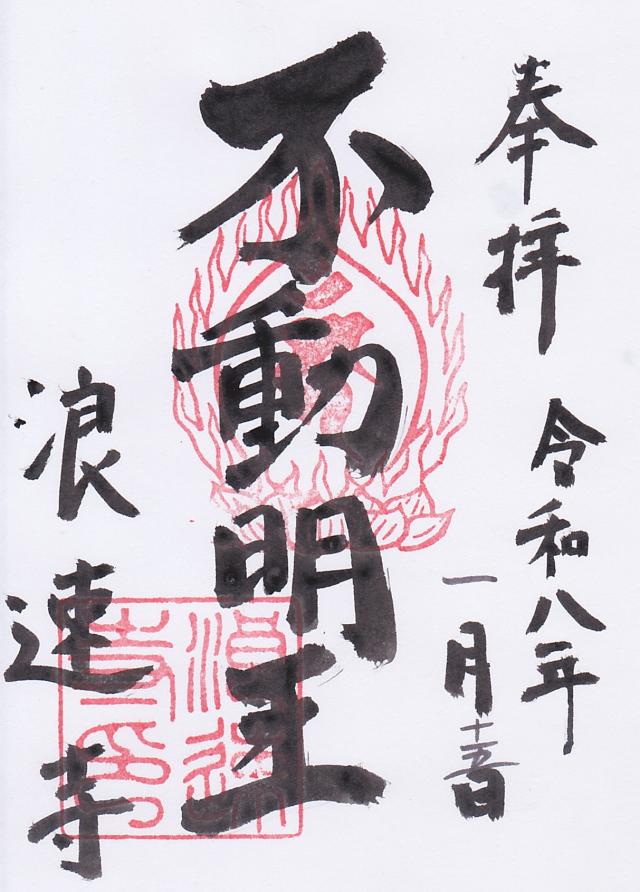 奉拝
令和八年
一月十五日
不動明王
浪速寺
浪速寺印